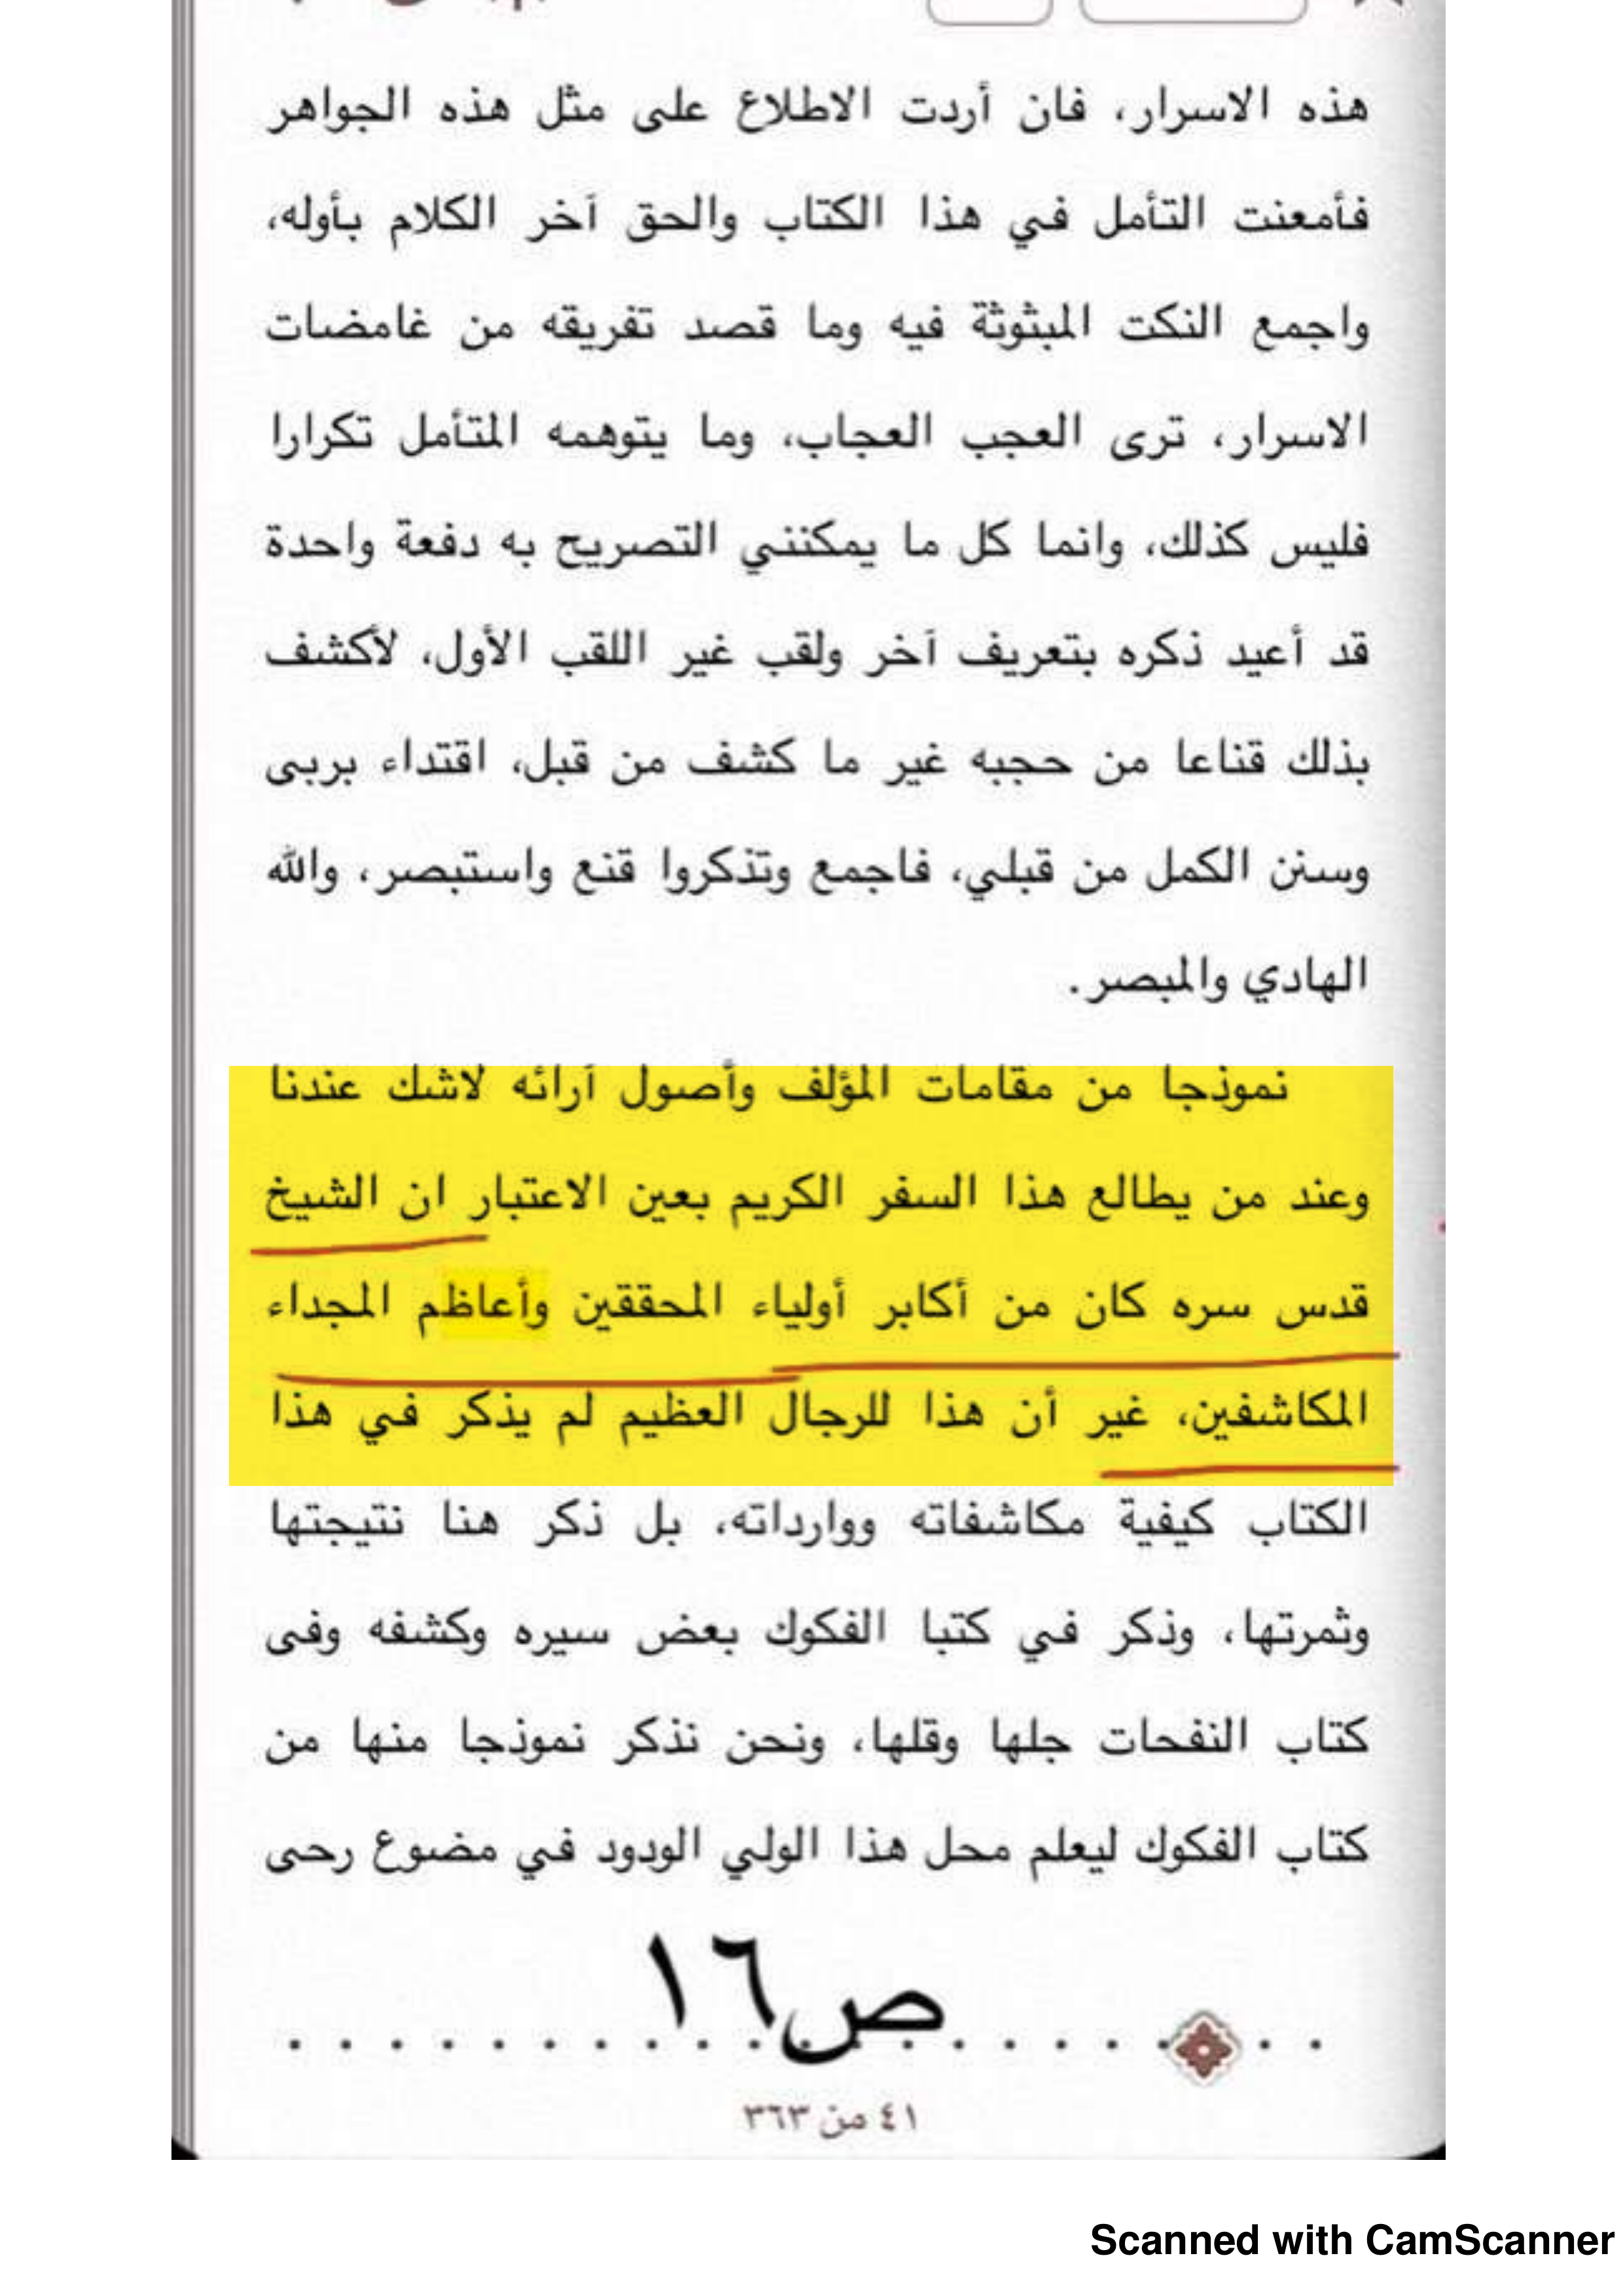 هذه الاسرار، فان أردت الاطلاع على مثل هذه الجواهر
فأمعنت التأمل في هذا الكتاب والحق آخر الكلام بأوله،
واجمع النكت المبثوثة فيه وما قصد تفريقه من غامضات
الاسرار، ترى العجب العجاب، وما يتوهمه المتأمل تكرارا
فليس كذلك، وانما كل ما يمكنني التصريح به دفعة واحدة
قد أعيد ذكره بتعريف آخر ولقب غير اللقب الأول، لأكشف
بذلك قناعا من حجبه غير ما كشف من قبل، اقتداء بربى
وسنن الكمل من قبلي، فاجمع وتذكروا قنع واستبصر، والله
الهادي والمبصر.
نموذجا من مقامات المؤلف وأصول آرائه لاشك عندنا
وعند من يطالع هذا السفر الكريم بعين الاعتبار ان الشيخ
قدس سره كان من أكابر أولياء المحققين وأعاظم المجداء
المكاشفين، غير أن هذا للرجال العظيم لم يذكر في هذا
الكتاب كيفية مكاشفاته ووارداته، بل ذكر هنا نتيجتها
وثمرتها، وذكر في كتبا الفكوك بعض سيره وكشفه وفى
كتاب النفحات جلها وقلها، ونحن نذكر نموذجا منها من
كتاب الفكوك ليعلم محل هذا الولي الودود في مضوع رحى
ص١٦
٤١ من ٣٦٣
Scanned with CamScanner